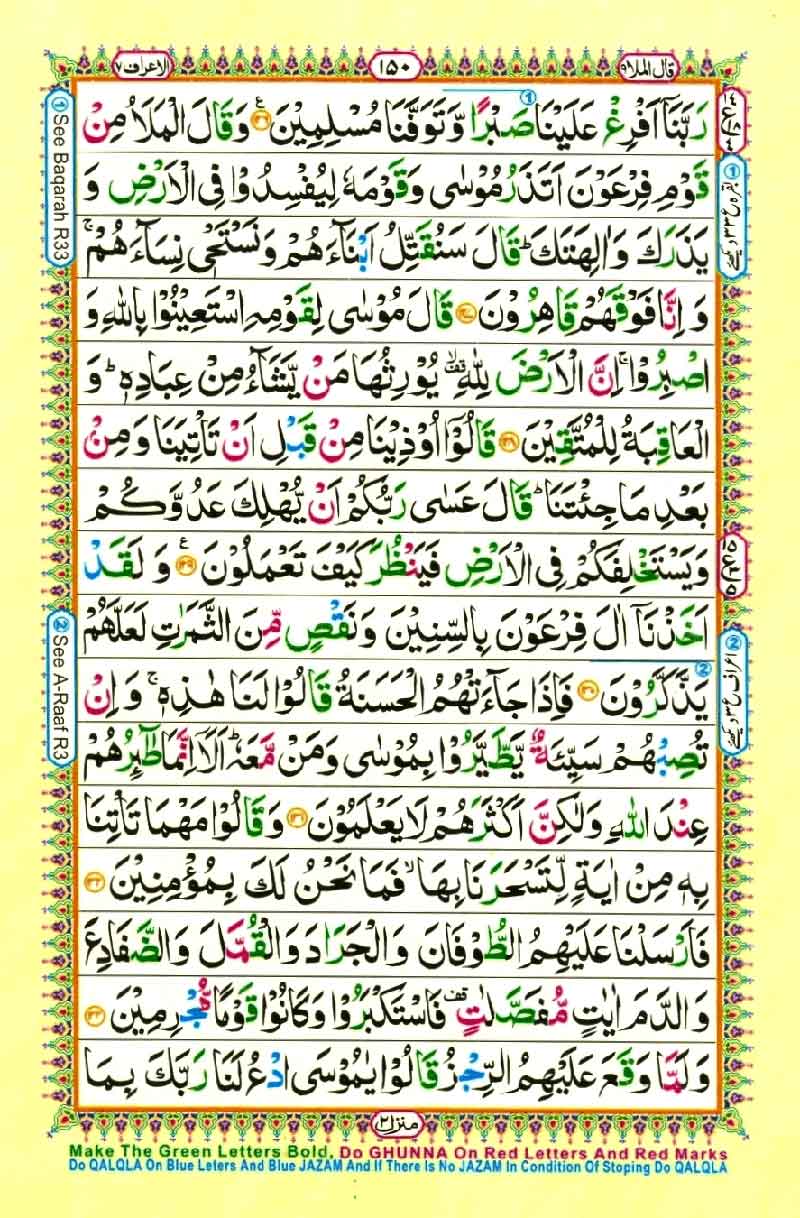 قال الملا ٩
١٥٠
الاعراف ٧
رَبَّنَاۤ اَفْرِغْ عَلَیْنَا صَبْرًا وَّ تَوَفَّنَا مُسْلِمِیْنَ۠ وَ قَالَ الْمَلَاُ مِنْ
قَوْمِ فِرْعَوْنَ اَتَذَرُ مُوْسٰی وَ قَوْمَهٗ لِیُفْسِدُوْا فِی الْاَرْضِ وَ
یَذَرَكَ وَ اٰلِهَتَكَ ؕ قَالَ سَنُقَتِّلُ اَبْنَآءَهُمْ وَ نَسْتَحْیٖ نِسَآءَهُمْ ۚ
وَ اِنَّا فَوْقَهُمْ قٰهِرُوْنَ قَالَ مُوْسٰی لِقَوْمِهِ اسْتَعِیْنُوْا بِاللّٰهِ وَ
اصْبِرُوْا ۚ اِنَّ الْاَرْضَ لِلّٰهِ ۙ یُوْرِثُهَا مَنْ یَّشَآءُ مِنْ عِبَادِهٖ ؕ وَ
الْعَاقِبَةُ لِلْمُتَّقِیْنَ قَالُوْۤا اُوْذِیْنَا مِنْ قَبْلِ اَنْ تَاْتِیَنَا وَ مِنْۢ
بَعْدِ مَا جِئْتَنَا ؕ قَالَ عَسٰی رَبُّكُمْ اَنْ یُّهْلِكَ عَدُوَّكُمْ
وَ یَسْتَخْلِفَكُمْ فِی الْاَرْضِ فَیَنْظُرَ كَیْفَ تَعْمَلُوْنَ۠ وَ لَقَدْ
اَخَذْنَاۤ اٰلَ فِرْعَوْنَ بِالسِّنِیْنَ وَ نَقْصٍ مِّنَ الثَّمَرٰتِ لَعَلَّهُمْ
یَذَّكَّرُوْنَ ۳۰ فَاِذَا جَآءَتْهُمُ الْحَسَنَةُ قَالُوْا لَنَا هٰذِهٖ ۚ وَ اِنْ
تُصِبْهُمْ سَیِّئَةٌ یَّطَّیَّرُوْا بِمُوْسٰی وَ مَنْ مَّعَهٗ ؕ اَلَاۤ اِنَّمَا طٰٓىِٕرُهُمْ
عِنْدَ اللّٰهِ وَ لٰكِنَّ اَكْثَرَهُمْ لَا یَعْلَمُوْنَ ۳۱ وَ قَالُوْا مَهْمَا تَاْتِنَا
بِهٖ مِنْ اٰیَةٍ لِّتَسْحَرَنَا بِهَا ۙ فَمَا نَحْنُ لَكَ بِمُؤْمِنِیْنَ ۳۲
فَاَرْسَلْنَا عَلَیْهِمُ الطُّوْفَانَ وَ الْجَرَادَ وَ الْقُمَّلَ وَ الضَّفَادِعَ
وَ الدَّمَ اٰیٰتٍ مُّفَصَّلٰتٍ فَاسْتَكْبَرُوْا وَ كَانُوْا قَوْمًا مُّجْرِمِیْنَ ۳۳
وَ لَمَّا وَقَعَ عَلَیْهِمُ الرِّجْزُ قَالُوْا یٰمُوْسَی ادْعُ لَنَا رَبَّكَ بِمَا
① See Baqarah R33
② See A-Raaf R3
① بقرہ ع ۳۳ دیکھئے
② اعراف ع ۳ دیکھئے
منزل ۲
Make The Green Letters Bold, Do GHUNNA On Red Letters And Red Marks
Do QALQLA On Blue Leters And Blue JAZAM And If There Is No JAZAM In Condition Of Stoping Do QALQLA